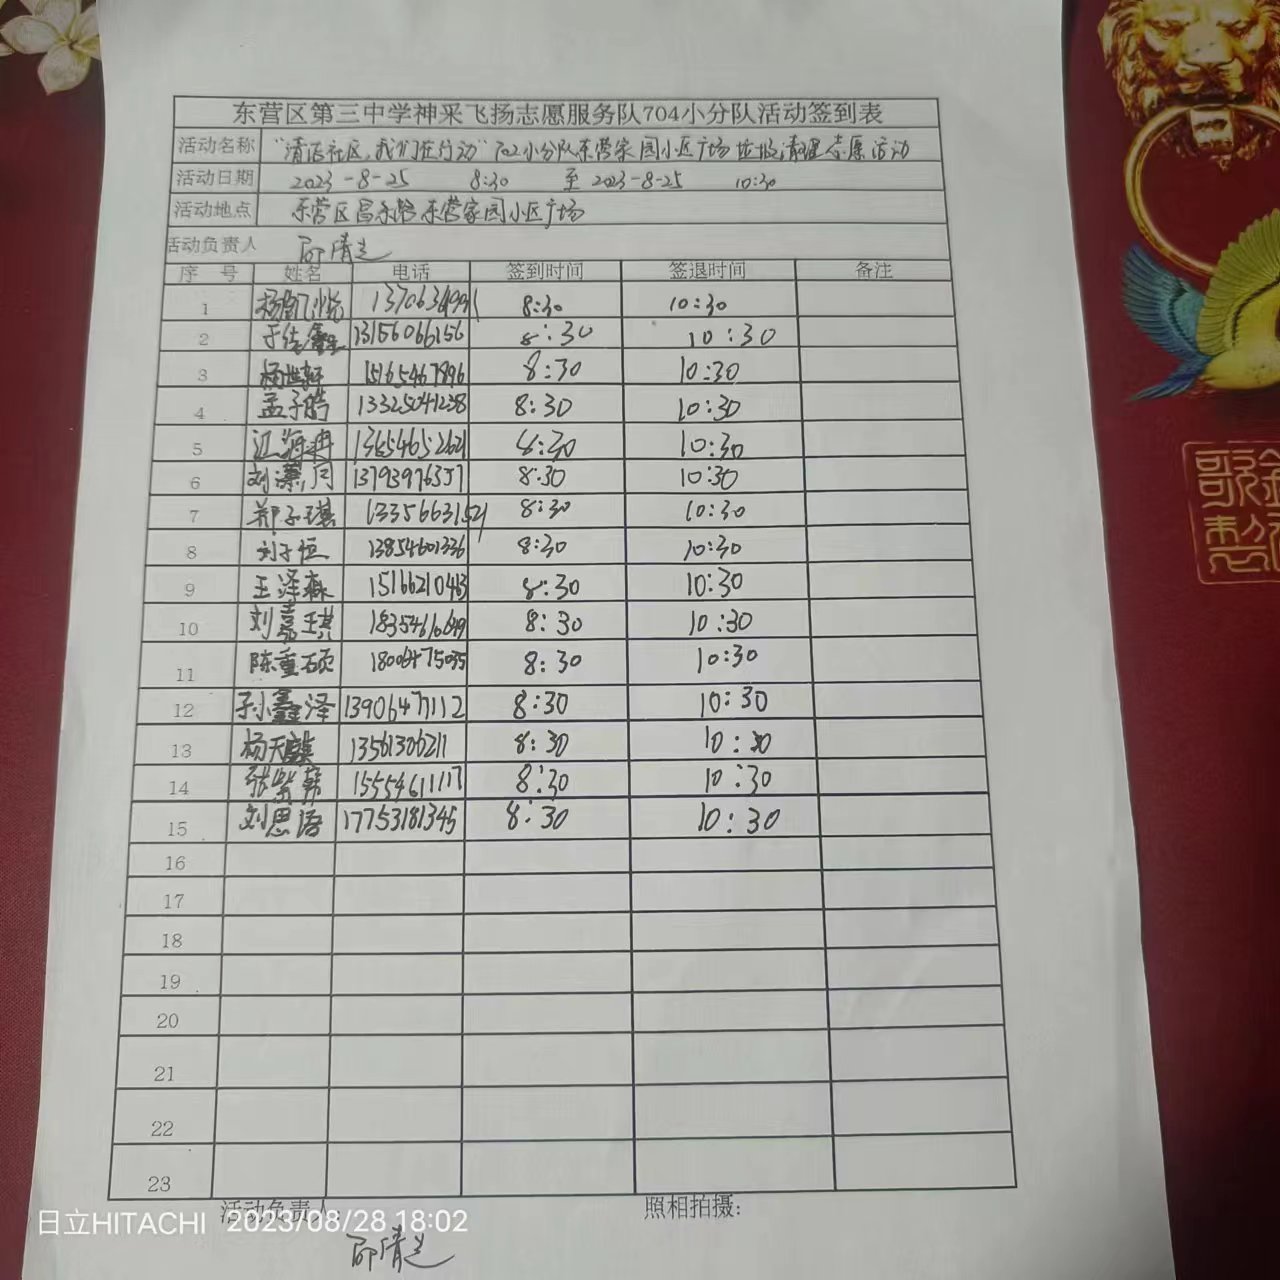 东营区第三中学神采飞扬志愿服务队704小分队活动签到表
活动名称 "清洁社区,我们在行动"702小分队东营家园小区广场垃圾清理志愿活动
活动日期 2023-8-25 8:30 至 2023-8-25 10:30
活动地点 东营区昌乐路东营家园小区广场
活动负责人
序号 姓名 电话 签到时间 签退时间 备注
1 8:30 10:30
2 于佳鑫 13156066156 8:30 10:30
3 杨世轩 15165467896 8:30 10:30
4 孟子皓 13325041238 8:30 10:30
5 江海冉 13654652621 8:30 10:30
6 刘潇月 13793976357 8:30 10:30
7 郑子琪 13356631521 8:30 10:30
8 刘子恒 13854601336 8:30 10:30
9 王泽森 15166210463 8:30 10:30
10 刘嘉琪 8:30 10:30
11 陈重硕 18006475035 8:30 10:30
12 孙鑫泽 13906477112 8:30 10:30
13 杨天麒 13561306211 8:30 10:30
14 张紫韩 15554611117 8:30 10:30
15 刘思语 17753181345 8:30 10:30
16
17
18
19
20
21
22
23
活动负责人: 照相拍摄:
日立HITACHI 2023/08/28 18:02